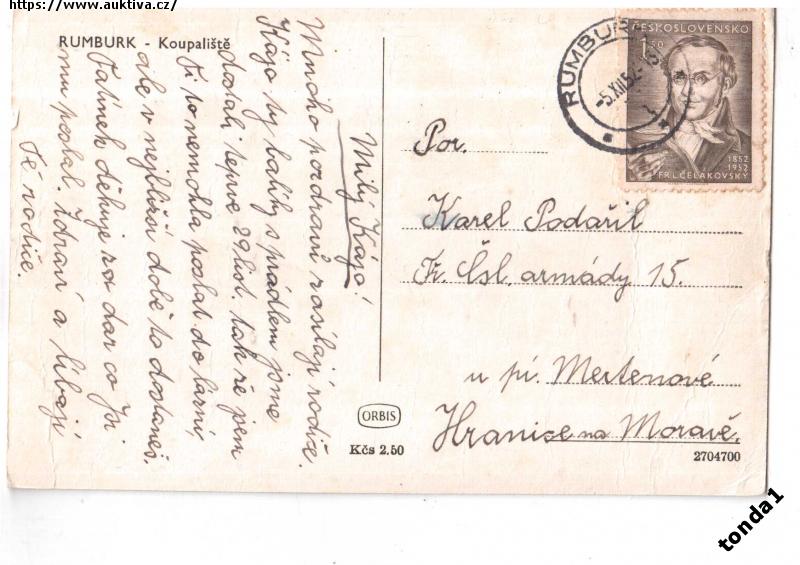 https://www.auktiva.cz/
RUMBURK - Koupaliště
Milý Kájo!
Mnoho pozdravů zasílají rodiče.
Kájo ty balíky s prádlem jsme
dostali teprve 29 list. tak že jsem
Ti to nemohla poslat do
ale v nejbližší době to dostaneš.
Tatínek děkuje za dar co jsi
mu poslal. Zdraví a líbají
Tě rodiče.
RUMBUR
-5.XII.52-15
ČESKOSLOVENSKO
1,50
1852
1952
FR.L.ČELAKOVSKÝ
Por.
Karel Podařil
Tř. Čsl. armády 15.
u pí. Mertenové
Hranice na Moravě.
ORBIS
Kčs 2.50
2704700
tonda1